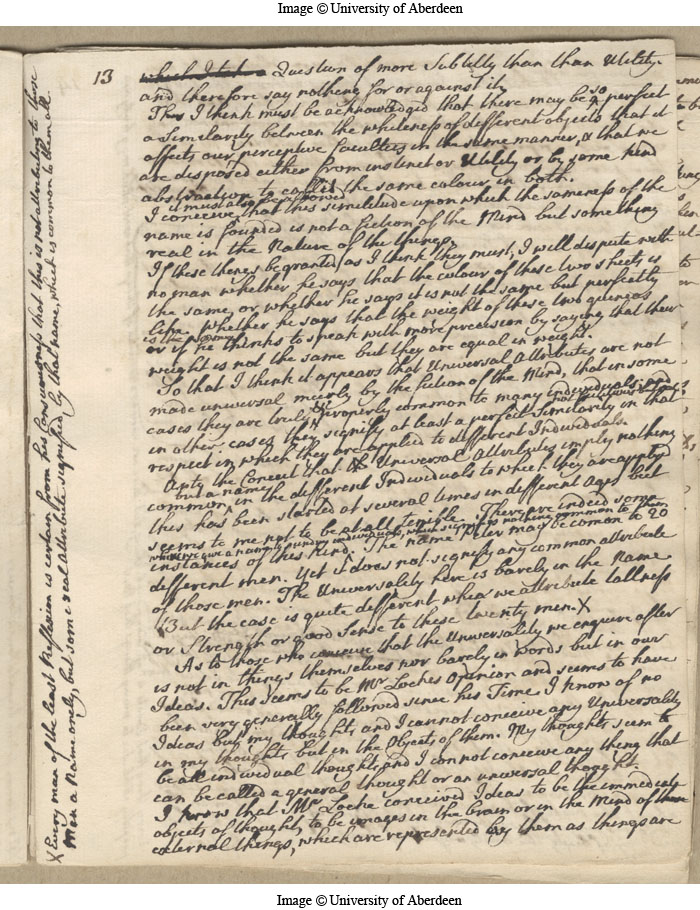 Image © University of Aberdeen
13
which I take a Question of more Subtilty than than Utility.
and therefore say nothing for or against it.
This I think must be acknowledged that there may be so perfect
a Similarity between the whiteness of different objects that it
affects our perceptive faculties in the same manner, & that we
are disposed either from instinct or Utility or by some kind
abstraction to call it the same colour in both.
it must also be allowed
I conceive that this similitude upon which the sameness of the
name is founded is not a fiction of the Mind but something
real in the Nature of the things.
If these things be granted, as I think they must, I will dispute with
no man whether he says that the colour of these two sheets is
the same, or whether he says it is not the same but perfectly
like. Whether he says that the weight of these two guineas
is the same
or if he thinks to speak with more precision by saying that their
weight is not the same but they are equal in weight.
So that I think it appears that Universal Attributes are not
made universal merely by the fiction of the Mind, that in some
cases they are truly & properly common to many individuals and
in other cases they signify at least a perfect Similarity in that
respect in which they are applied to different Individuals.
4ptly the Conceit that Universal Attributes imply nothing
but a name
common in the different Individuals to which they are applyd
this has been started at several times in different Ages but
seems to me not to be at all tenible. There are indeed some
where we give a name to sundry individuals, which signifies nothing common to them
instances of this kind. The name Peter may be common to 20
different men. Yet it does not signify any common attribute
of those men. The Universality here is barely in the Name
But the case is quite different when we attribute tallness
or Strength or good Sense to these twenty men. X
As to those who conceive that the Universality we enquire after
is not in things themselves nor barely in words but in our
Ideas. This seems to be Mr Lockes Opinion and seems to have
been very generally followed since his Time. I know of no
Ideas but my thoughts and I cannot conceive any Universality
in my thoughts but in the Objects of them. My thoughts seem to
be all individual thoughts and I connot conceive any thing that
can be called a general thought or an unversal thought.
I know that Mr Locke conceived Ideas to be the immediate
objects of thought, to be images in the brain or in the Mind of
external things, which are represented by them as things are
X Every man of the least Reflexion is certain from his Consciousness that this is not attributing to those
Men a Name onely, but some real Attribute signified by that name, which is common to them all.
Image © University of Aberdeen